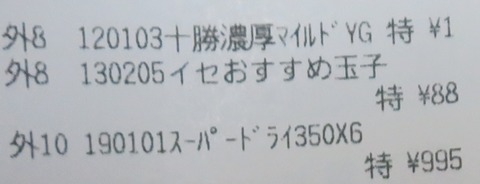 外8 120103十勝濃厚ﾏｲﾙﾄﾞYG 特 ¥1
外8 130205イセおすすめ玉子
特 ¥88
外10 190101ｽｰﾊﾟｰﾄﾞﾗｲ350X6
特 ¥995